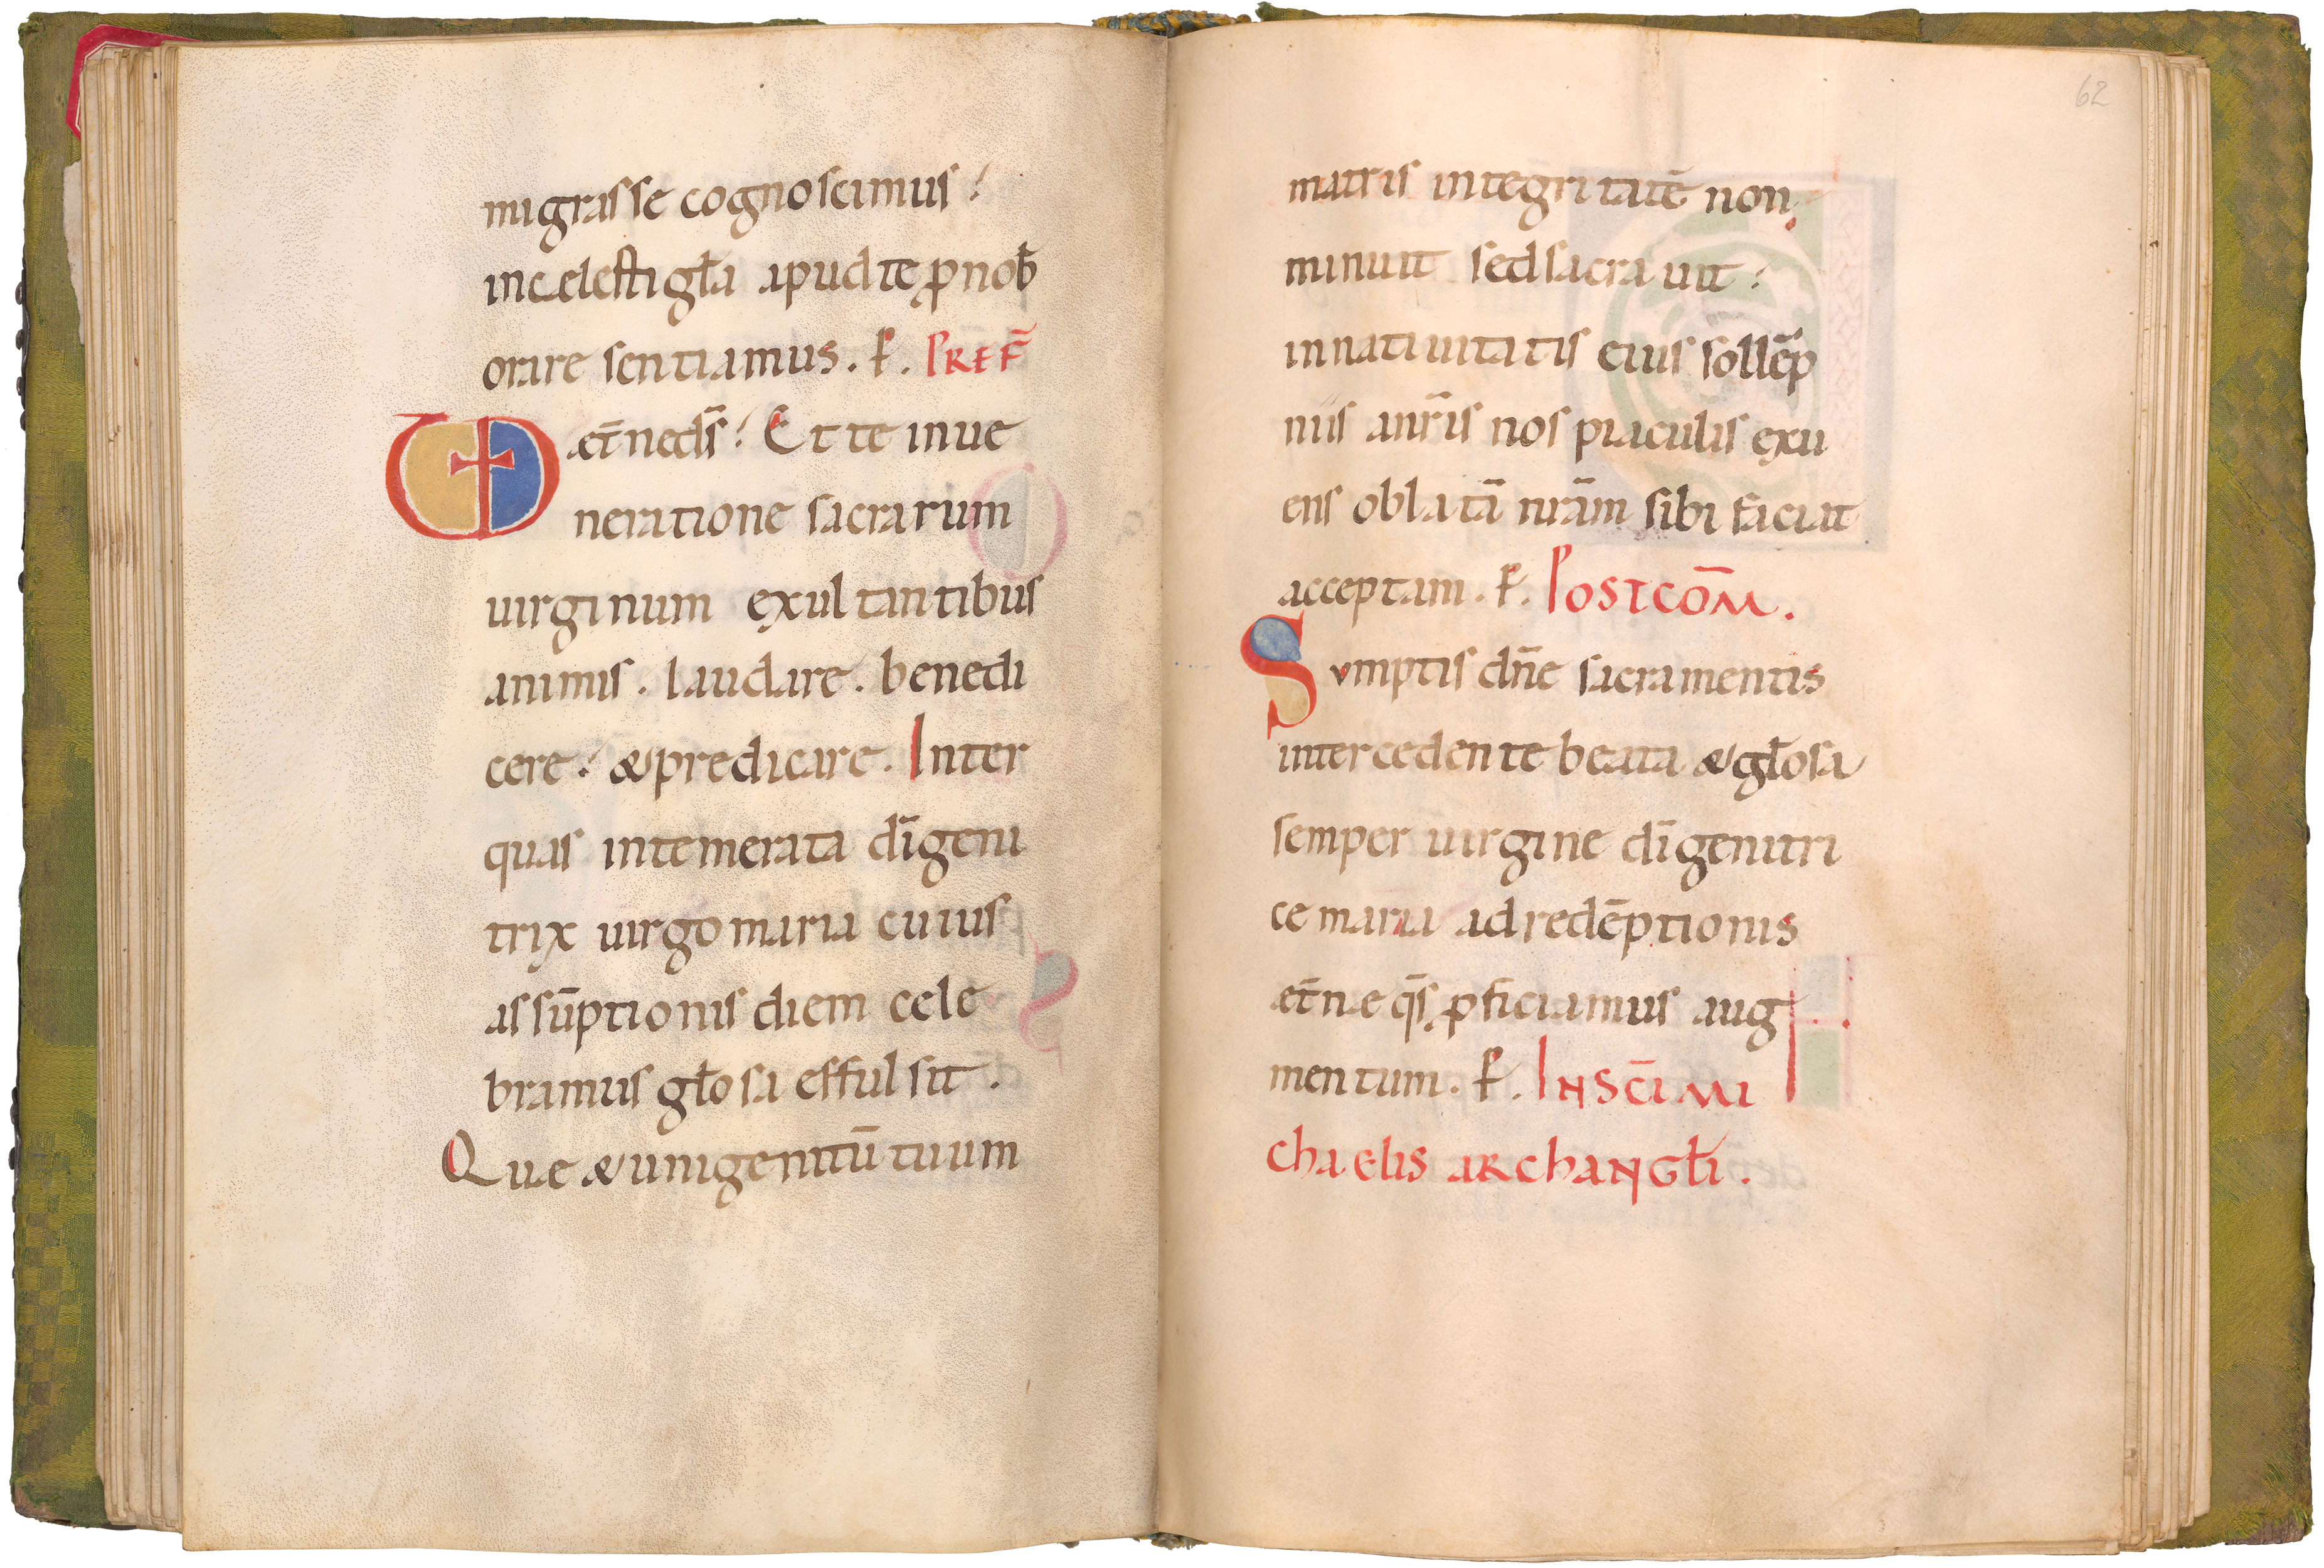 migrasse cognoscimus.
in celesti gła apud te ꝓ nob̄
orare sentiamus. P̄. PREF̄
VD æt̄ne ds̄. Et te in ue
neratione sacrarum
uirginum exultantibus
animis. laudare. benedi
cere. & predicare. Inter
quas intemerata dī geni
trix uirgo maria cuius
assūptionis diem cele
bramus głosa effulsit.
Quæ & unigenitū tuum
62
matris integritatē non
minuit sed sacrauit.
in natiuitatis eius sollēp
niis a nr̄is nos piaculis exu
ens oblatā nrām sibi faciat
acceptam. P̄. POSTCOM̄.
Sumptis dn̄e sacramentis
intercedente beata & głosa
semper uirgine dī genitri
ce maria ad redēptionis
æt̄næ qs̄ ꝓficiamus aug
mentum. P̄. IN SC̄I MI
chaelis archangłi.